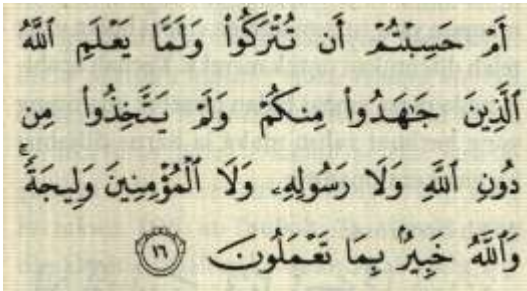 أَمْ حَسِبْتُمْ أَن تُتْرَكُوا۟ وَلَمَّا يَعْلَمِ ٱللَّهُ
ٱلَّذِينَ جَٰهَدُوا۟ مِنكُمْ وَلَمْ يَتَّخِذُوا۟ مِن
دُونِ ٱللَّهِ وَلَا رَسُولِهِۦ وَلَا ٱلْمُؤْمِنِينَ وَلِيجَةًۚ
وَٱللَّهُ خَبِيرٌۢ بِمَا تَعْمَلُونَ ١٦